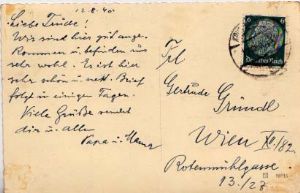 12.8.40
Liebe Trude!
Wir sind hier gut ange-
kommen u. befinden uns
sehr wohl. Es ist hier
sehr schön u. nett. Brief
folgt in einigen Tagen.
Viele Grüße sendet
dir u. allen
Papa u. Mama
6
6
Deutsches Reich
Frl
Gertrude Gründl
Wien XII/82
Rotenmühlgasse
13./27